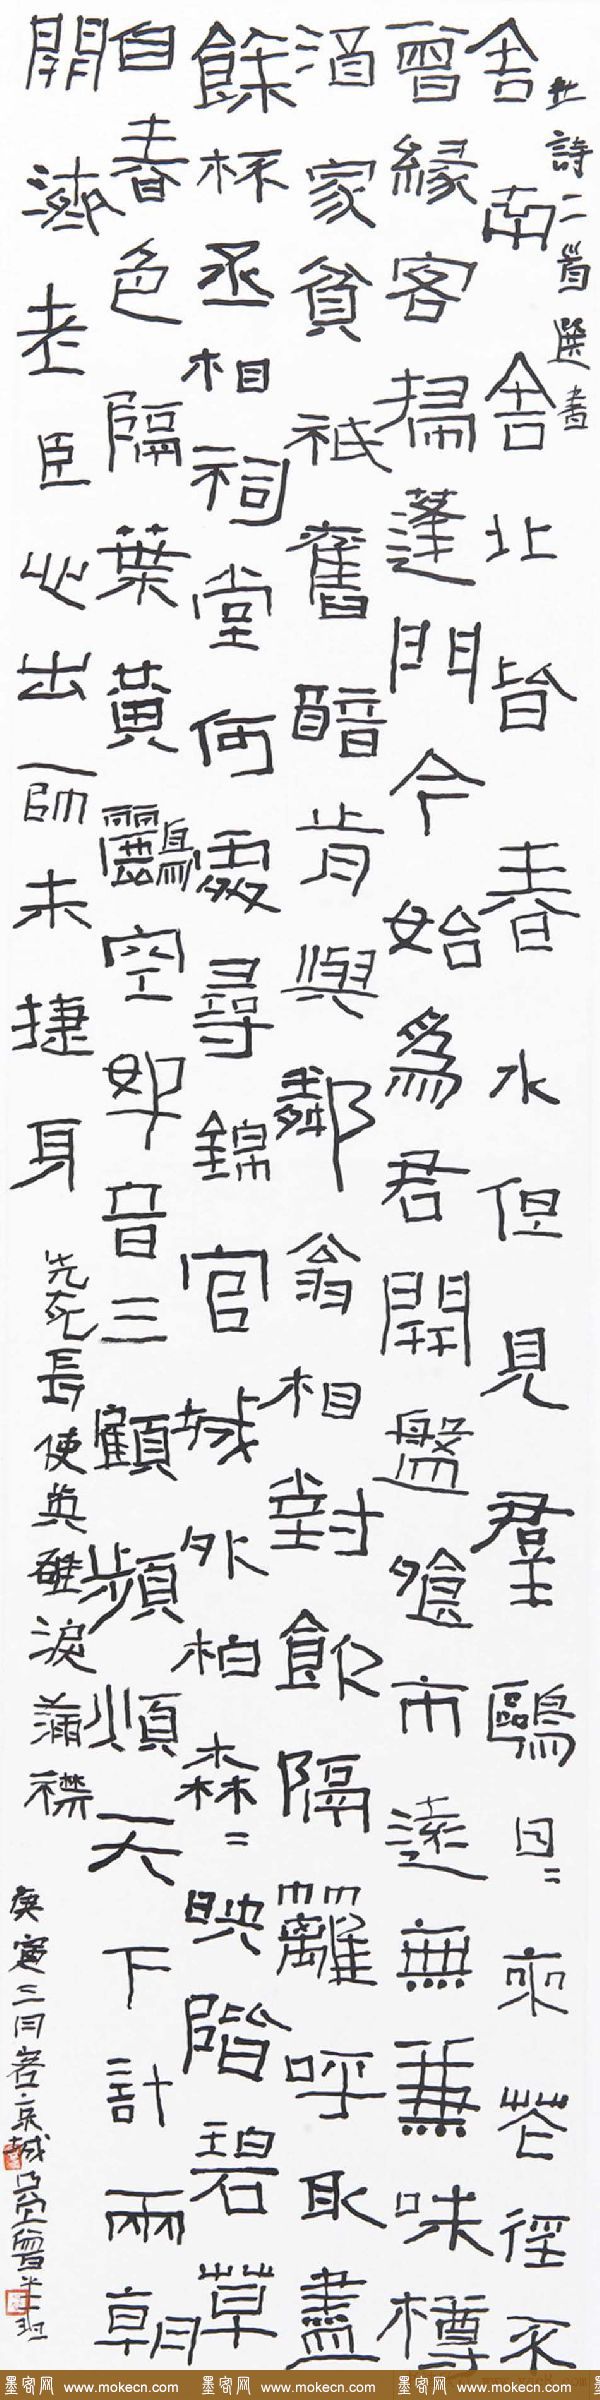 杜詩二首選書
舍南舍北皆春水但見羣鷗日=來花徑不
曾緣客掃蓬門今始為君開盤飧市遠無兼味樽
酒家貧祇舊醅肯與鄰翁相對飲隔籬呼取盡
餘杯丞相祠堂何處尋錦官城外柏=森=映階碧草
自春色隔葉黃鸝空好音三顧頻煩天下計兩朝
開濟老臣心出師未捷身先死長使英雄淚滿襟
庚寅三月書京城
墨客网 www.mokecn.com 墨客网 www.mokecn.com 墨客网 www.mokecn.com 墨客网